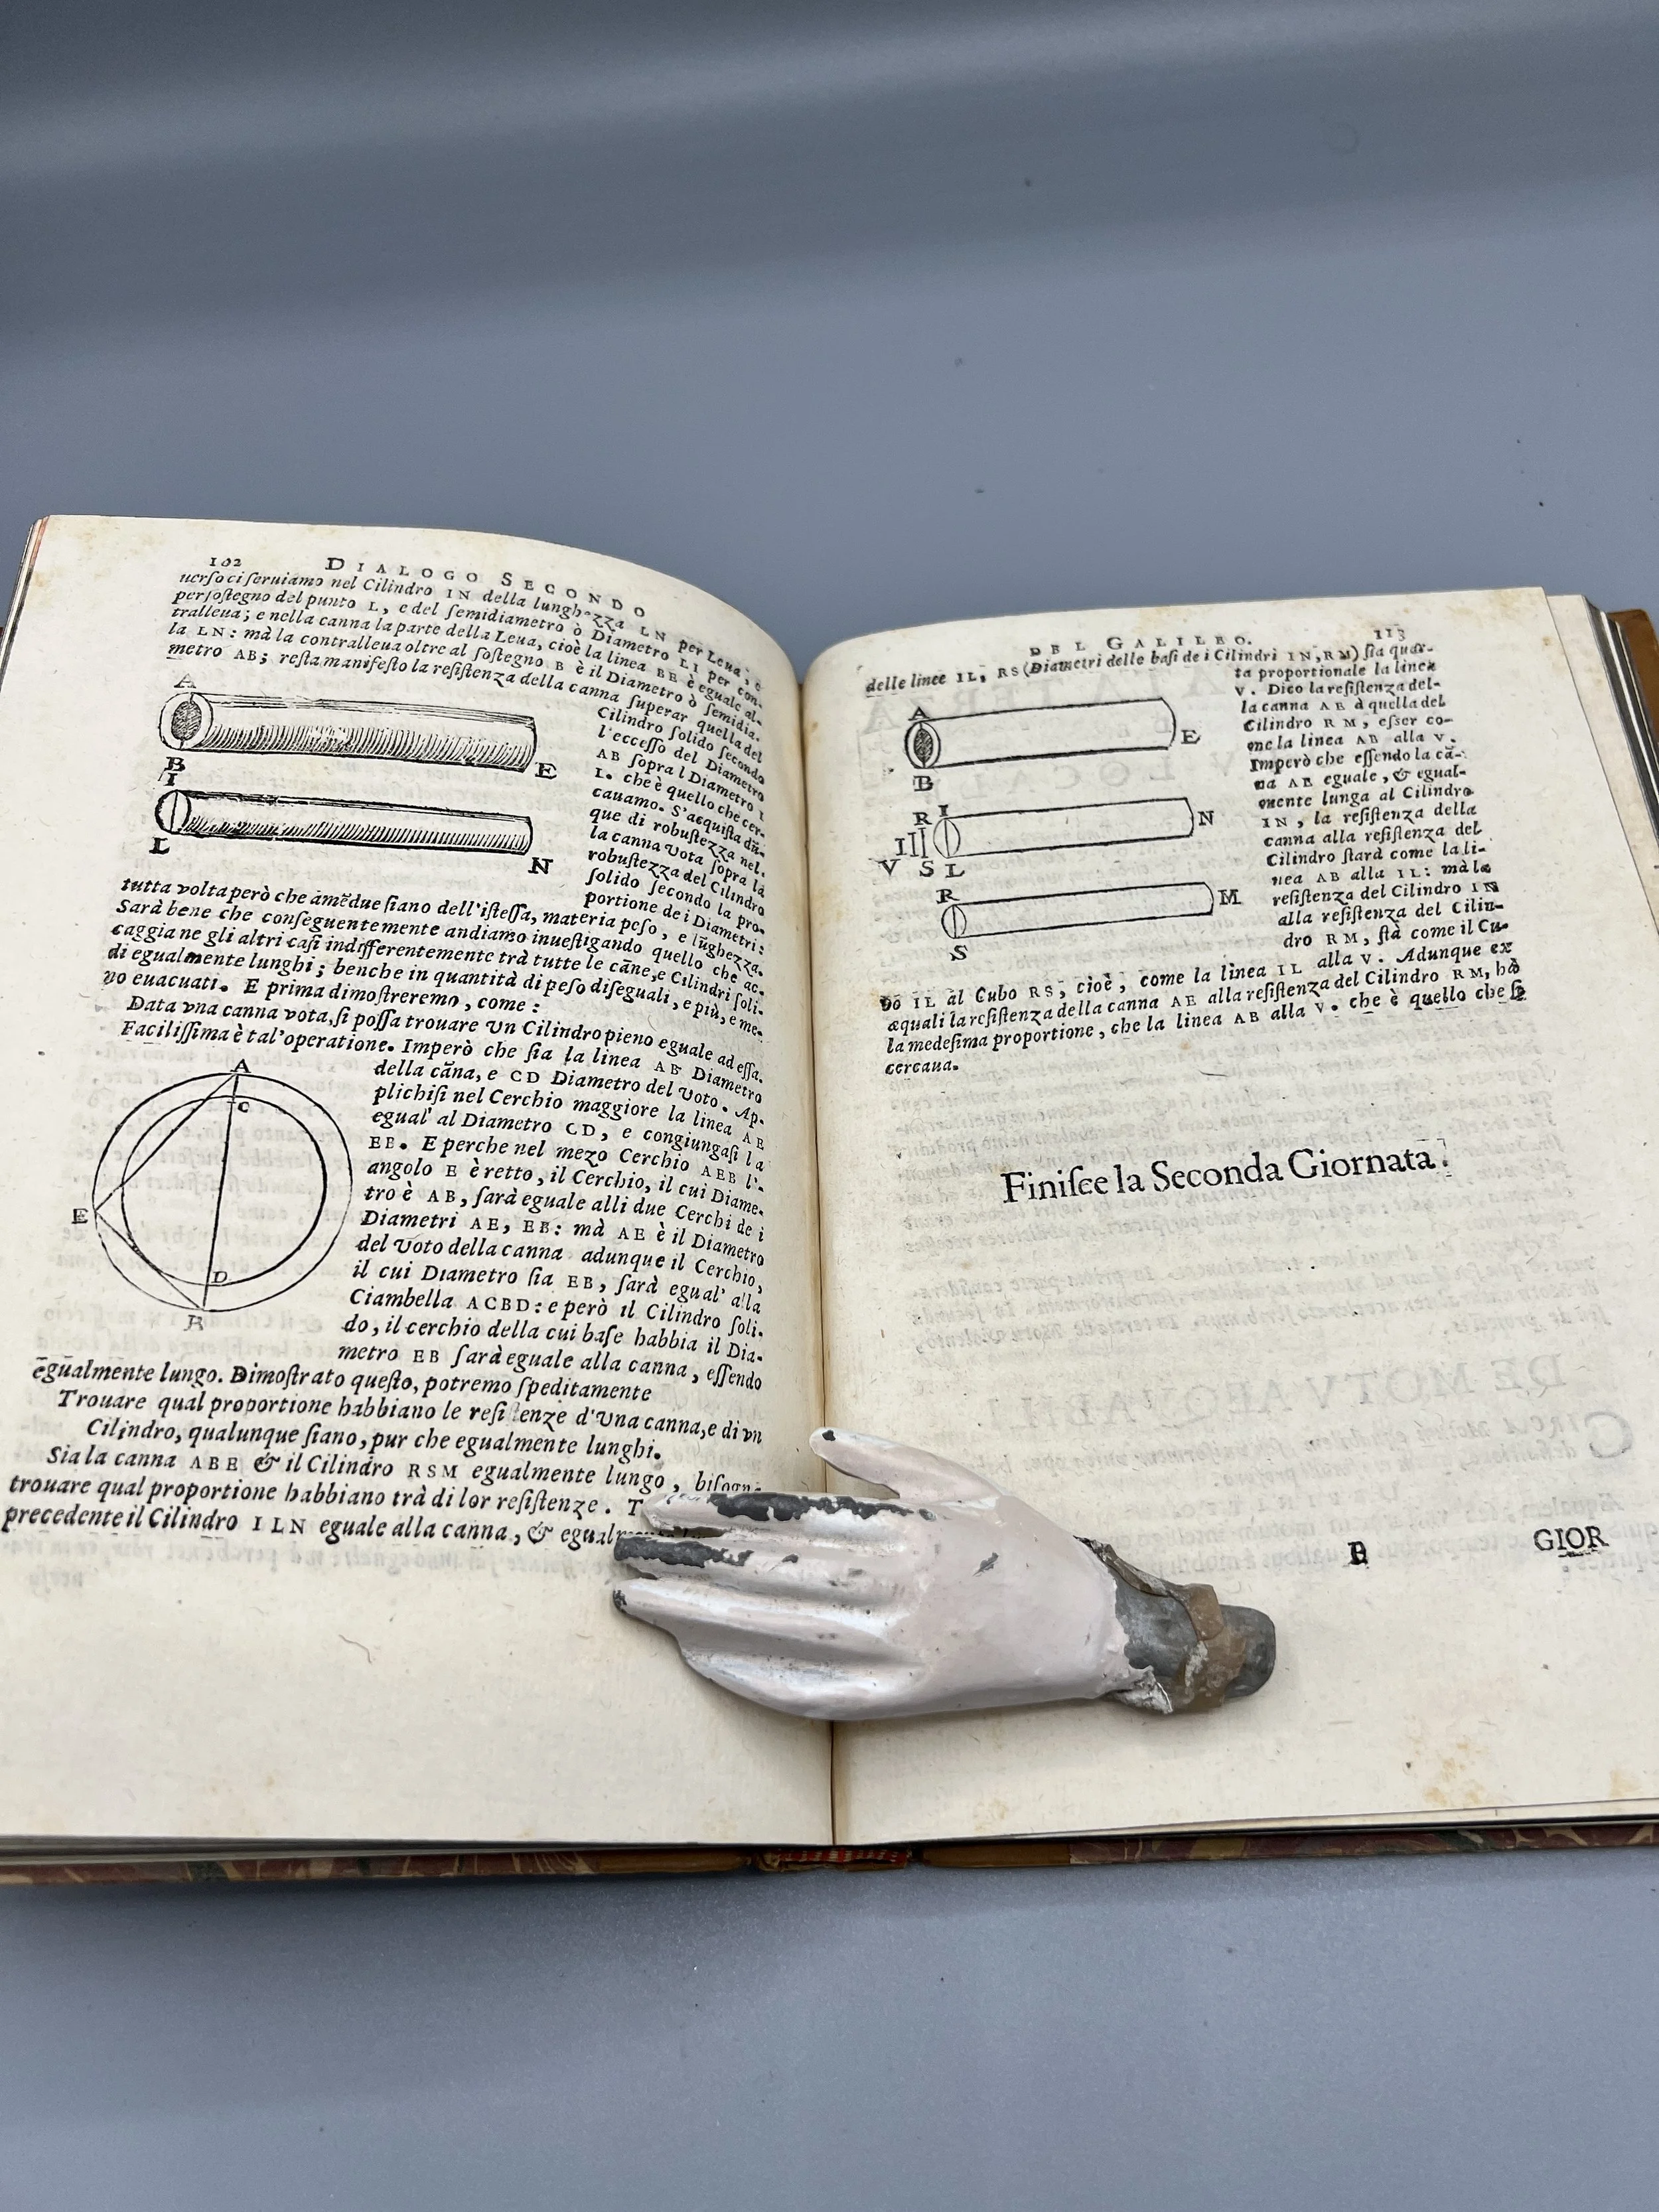 102 DIALOGO SECONDO
uerſo ci ſeruiamo nel Cilindro IN della lunghezza LN per Leua, e
per ſoſtegno del punto L, e del ſemidiametro ò Diametro LI per con-
tralleua; e nella canna la parte della Leua, cioè la linea BE è eguale al-
la LN: mà la contralleua oltre al ſoſtegno B è il Diametro ò ſemidia-
metro AB; reſta manifeſto la reſiſtenza della canna ſuperar quella del
Cilindro ſolido ſecondo
l'ecceſſo del Diametro
AB ſopra l Diametro I
L. che è quello che cer-
cauamo. S'acquiſta dū-
que di robuſtezza nel-
la canna vota ſopra la
robuſtezza del Cilindro
ſolido ſecondo la pro-
portione de i Diametri:
A
B
E
I
L
N
tutta volta però che amēdue ſiano dell'iſteſſa, materia peſo, e lūghezza.
Sarà bene che conſeguentemente andiamo inueſtigando quello che ac-
caggia ne gli altri caſi indifferentemente trà tutte le cāne, e Cilindri ſoli-
di egualmente lunghi; benche in quantità di peſo diſeguali, e più, e me-
no euacuati. E prima dimoſtreremo, come:
Data vna canna vota, ſi poſſa trouare un Cilindro pieno eguale ad eſſa.
Faciliſſima è tal'operatione. Imperò che ſia la linea AB Diametro
della cāna, e CD Diametro del voto. Ap-
plichiſi nel Cerchio maggiore la linea AE
egual' al Diametro CD, e congiungaſi la
EB. E perche nel mezo Cerchio AEB l'-
angolo E è retto, il Cerchio, il cui Diame-
tro è AB, ſarà eguale alli due Cerchi de i
Diametri AE, EB: mà AE è il Diametro
del voto della canna adunque il Cerchio,
il cui Diametro ſia EB, ſarà egual' alla
Ciambella ACBD: e però il Cilindro ſoli-
do, il cerchio della cui baſe habbia il Dia-
metro EB ſarà eguale alla canna, eſſendo
A
C
E
D
B
egualmente lungo. Dimoſtrato queſto, potremo ſpeditamente
Trouare qual proportione habbiano le reſi enze d'una canna, e di vn
Cilindro, qualunque ſiano, pur che egualmente lunghi.
Sia la canna ABE & il Cilindro RSM egualmente lungo, biſogn
trouare qual proportione habbiano trà di lor reſiſtenze. T
precedente il Cilindro ILN eguale alla canna, & egual
DEL GALILEO. 113
delle linee IL, RS (Diametri delle baſi de i Cilindri IN, RM) ſia quar-
ta proportionale la linea
V. Dico la reſiſtenza del-
la canna AE à quella del
Cilindro RM, eſſer co-
me la linea AB alla V.
Imperò che eſſendo la cā-
na AE eguale, & egual-
mente lunga al Cilindro
IN, la reſiſtenza della
canna alla reſiſtenza del
Cilindro ſtarà come la li-
nea AB alla IL: mà la
reſiſtenza del Cilindro IN
alla reſiſtenza del Cilin-
dro RM, ſtà come il Cu-
A
B
E
R I
N
V S L
R
M
S
bo IL al Cubo RS, cioè, come la linea IL alla V. Adunque ex
æquali la reſiſtenza della canna AE alla reſiſtenza del Cilindro RM, hà
la medeſima proportione, che la linea AB alla V. che è quello che ſi
cercaua.
Finiſce la Seconda Giornata.
GIOR